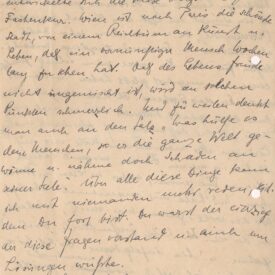 Wien ist nach Paris die schönste
Stadt, von einem Reichtum an Kunst u.
Leben, daß ein vernünftiger Mensch wochen
lang zu sehen hat. Daß das Lebens freude
nicht ungemischt ist, wird an solchen
Punkten schmerzlich. Und zuweilen denkt
man auch an den Satz. Was hülfe es
dem Menschen, so er die ganze Welt ge
wönne u. nähme doch Schaden an
seiner Seele. Über alle diese Dinge kann
ich mit niemanden mehr reden, seit
dem Du fort bist. Du warst der einzige
der diese Fragen verstand u. auch um
Lösungen wußte.